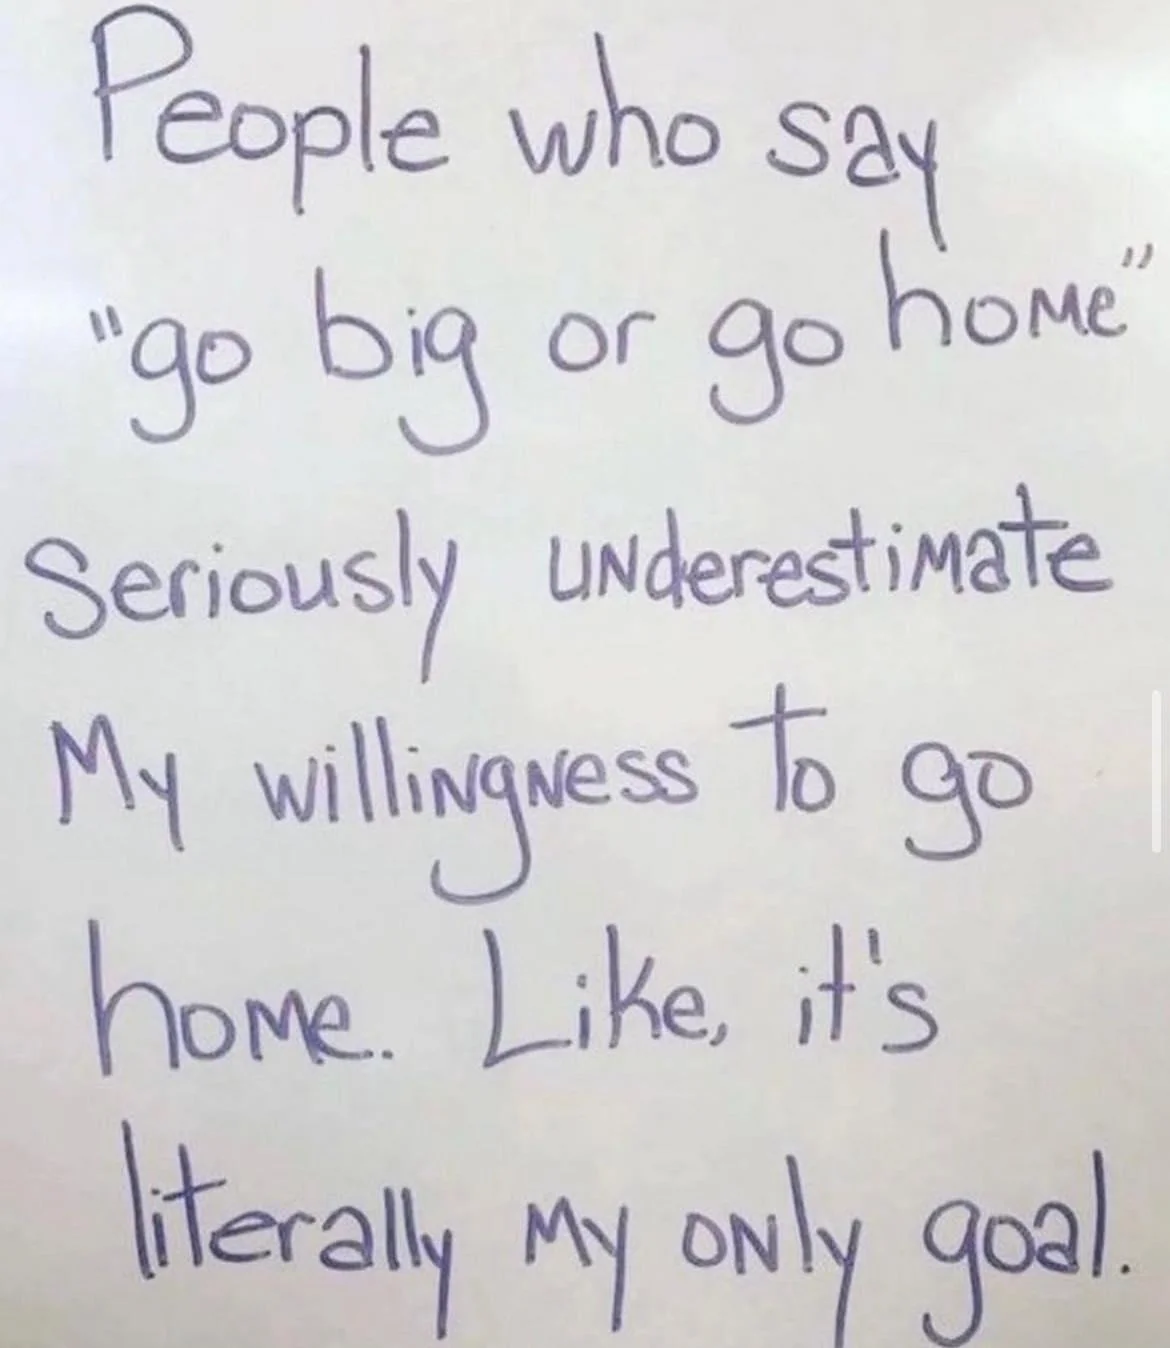 People who say
"go big or go home"
Seriously underestimate
My willingness to go
home. Like, it's
literally my only goal.